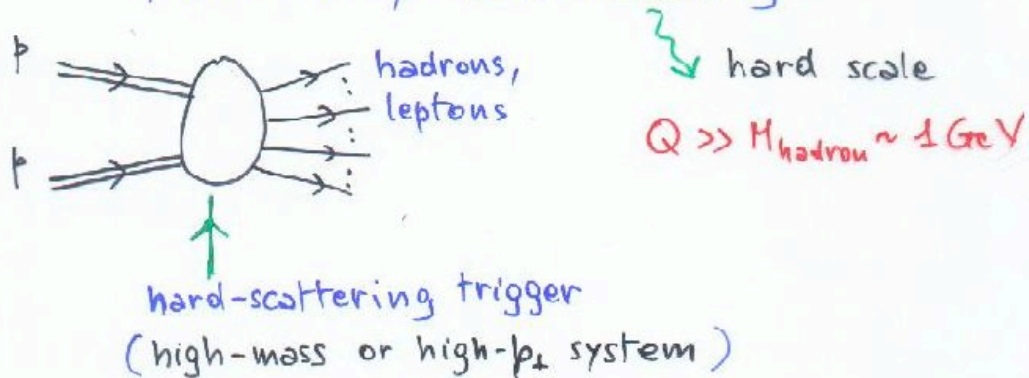 p
hadrons,
leptons
hard scale
Q >> M_hadron ~ 1 GeV
p
hard-scattering trigger
(high-mass or high-p⊥ system)